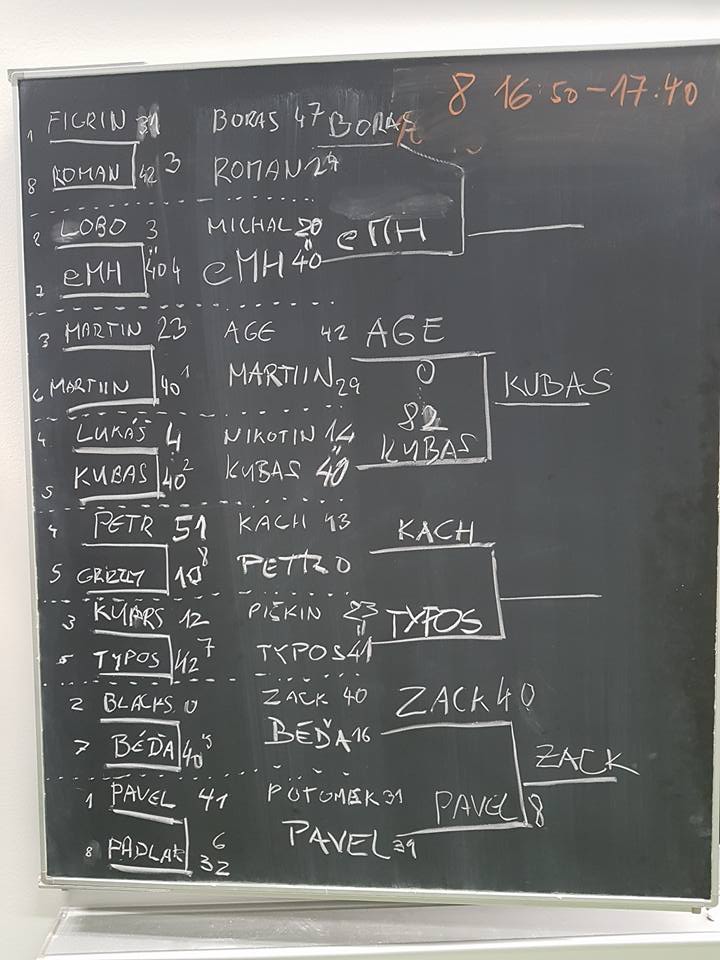 8 16:50-17.40
1 FIGRIN 31 BORAS 47 BORAS
8 ROMAN 42 3 ROMAN 24
2 LOBO 3 MICHAL 20
7 eMH 40 4 eMH 40 eMH
3 MARTIN 23 AGE 42 AGE
6 MARTIIN 40 1 MARTIIN 29 0
KUBAS
4 LUKÁŠ 4 NIKOTIN 14 82
5 KUBAS 40 2 KUBAS 40 KUBAS
4 PETR 51 KACH 43 KACH
5 GRIZZLY 10 8 PETR 0
3 KUBRS 12 PIŠKIN 23 TYPOS
TYPOS 42 7 TYPOS 41
2 BLACKS 0 ZACK 40 ZACK 40
7 BÉĎA 40 5 BÉĎA 16
ZACK
1 PAVEL 41 POTOMEK 31 PAVEL 8
8 PADLAK 6 32 PAVEL 39